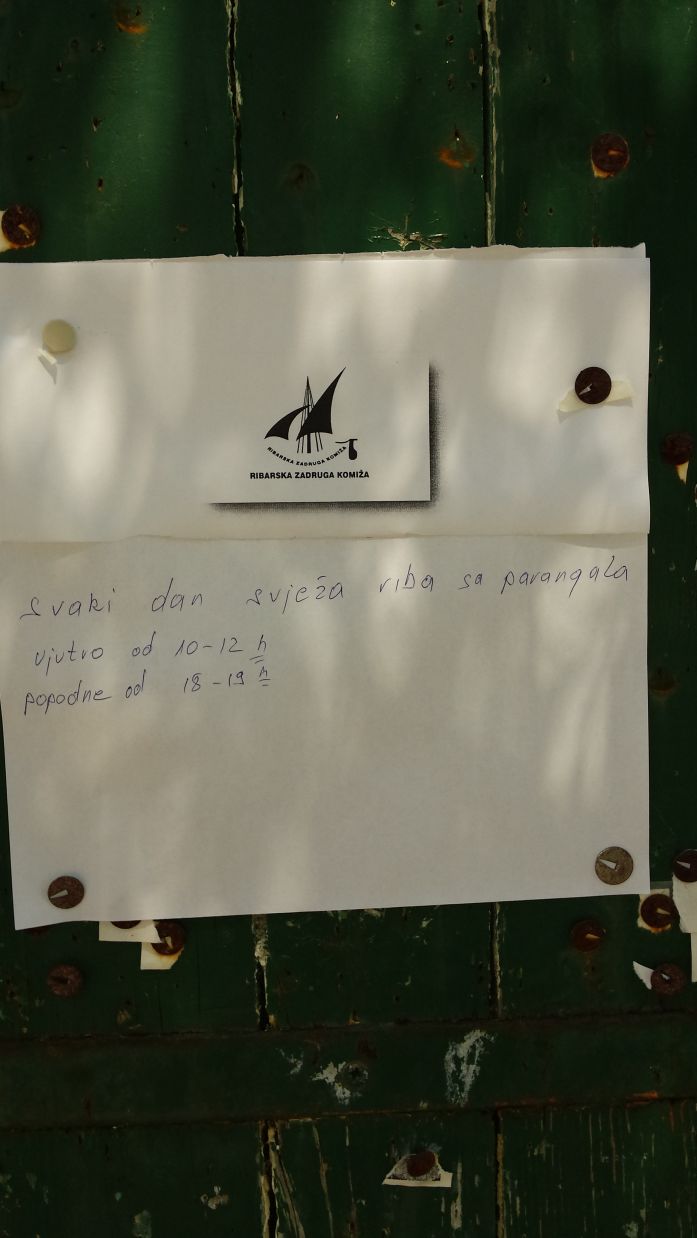 RIBARSKA ZADRUGA KOMIŽA
RIBARSKA ZADRUGA KOMIŽA
svaki dan svježa riba sa parangala
ujutro od 10-12 h
popodne od 18-19 h